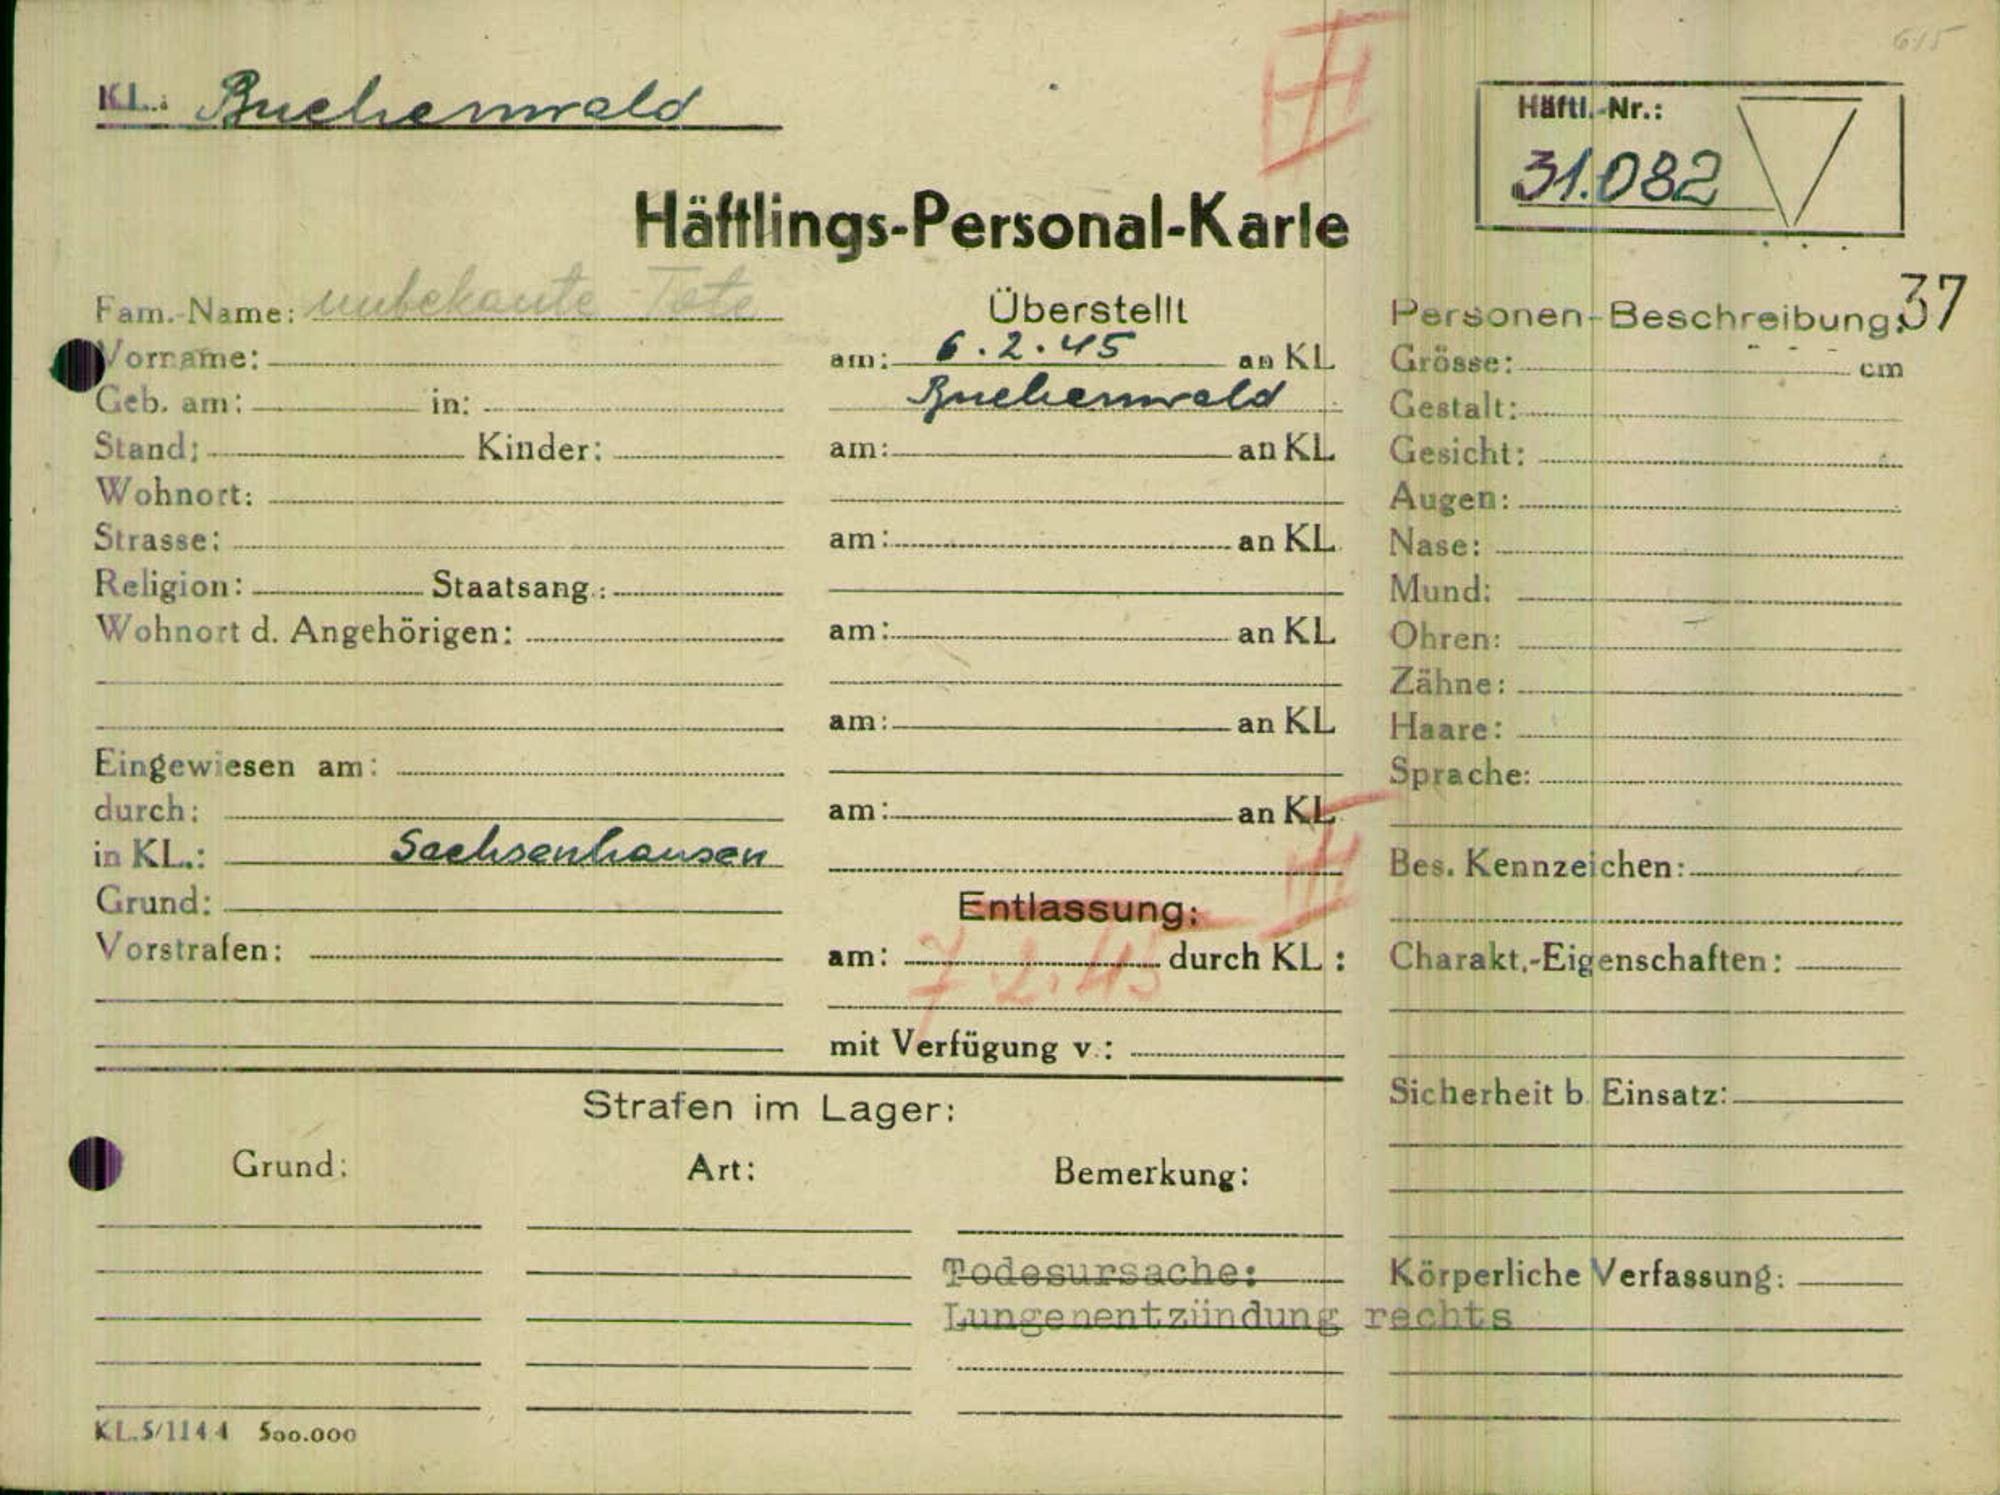 615
KL.: Buchenwald
Häftl.-Nr.:
31.082
Häftlings-Personal-Karte
37
Fam.-Name: unbekante Tote
Vorname:
Geb. am: in:
Stand: Kinder:
Wohnort:
Strasse:
Religion: Staatsang.:
Wohnort d. Angehörigen:
Eingewiesen am:
durch:
in KL.: Sachsenhausen
Grund:
Vorstrafen:
Überstellt
am: 6.2.45 an KL
Buchenwald
am: an KL
am: an KL
am: an KL
am: an KL
am: an KL
Entlassung:
am: 7.2.45 durch KL:
mit Verfügung v.:
Personen-Beschreibung:
Grösse: cm
Gestalt:
Gesicht:
Augen:
Nase:
Mund:
Ohren:
Zähne:
Haare:
Sprache:
Bes. Kennzeichen:
Charakt.-Eigenschaften:
Sicherheit b. Einsatz:
Körperliche Verfassung:
Strafen im Lager:
Grund: Art: Bemerkung:
Todesursache:
Lungenentzündung rechts
KL.5/1144 500.000